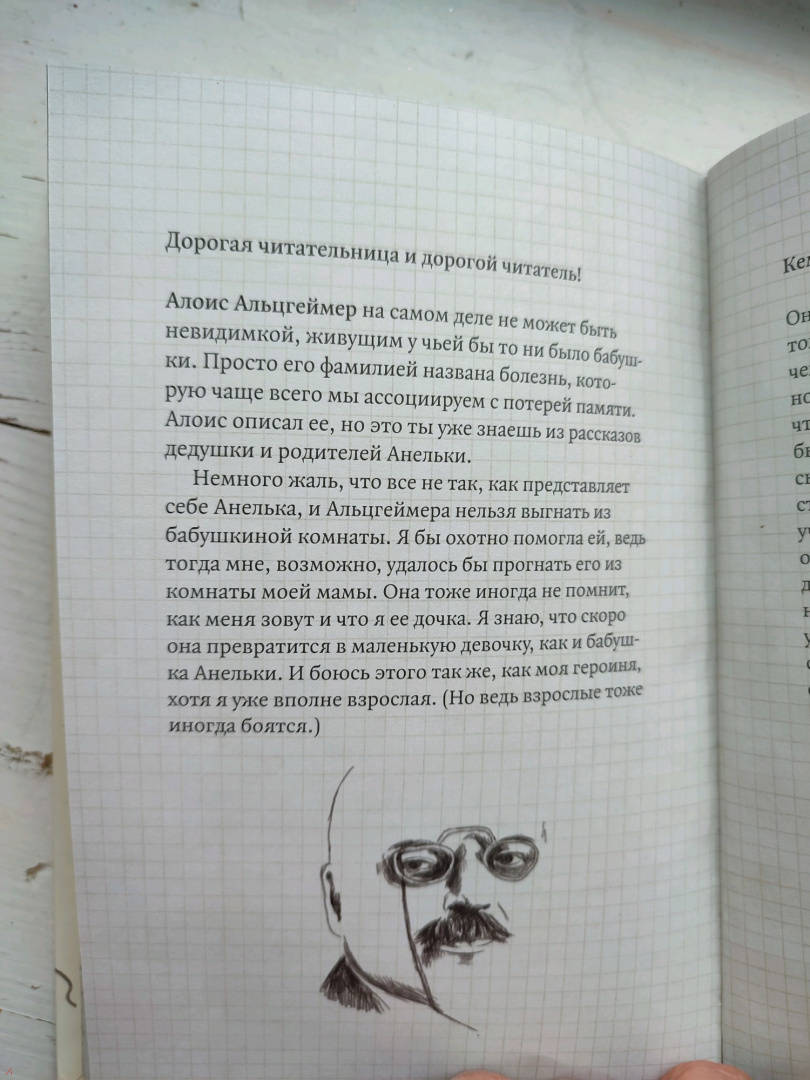 Дорогая читательница и дорогой читатель!
Алоис Альцгеймер на самом деле не может быть
невидимкой, живущим у чьей бы то ни было бабуш-
ки. Просто его фамилией названа болезнь, кото-
рую чаще всего мы ассоциируем с потерей памяти.
Алоис описал ее, но это ты уже знаешь из рассказов
дедушки и родителей Анельки.
Немного жаль, что все не так, как представляет
себе Анелька, и Альцгеймера нельзя выгнать из
бабушкиной комнаты. Я бы охотно помогла ей, ведь
тогда мне, возможно, удалось бы прогнать его из
комнаты моей мамы. Она тоже иногда не помнит,
как меня зовут и что я ее дочка. Я знаю, что скоро
она превратится в маленькую девочку, как и бабуш-
ка Анельки. И боюсь этого так же, как моя героиня,
хотя я уже вполне взрослая. (Но ведь взрослые тоже
иногда боятся.)